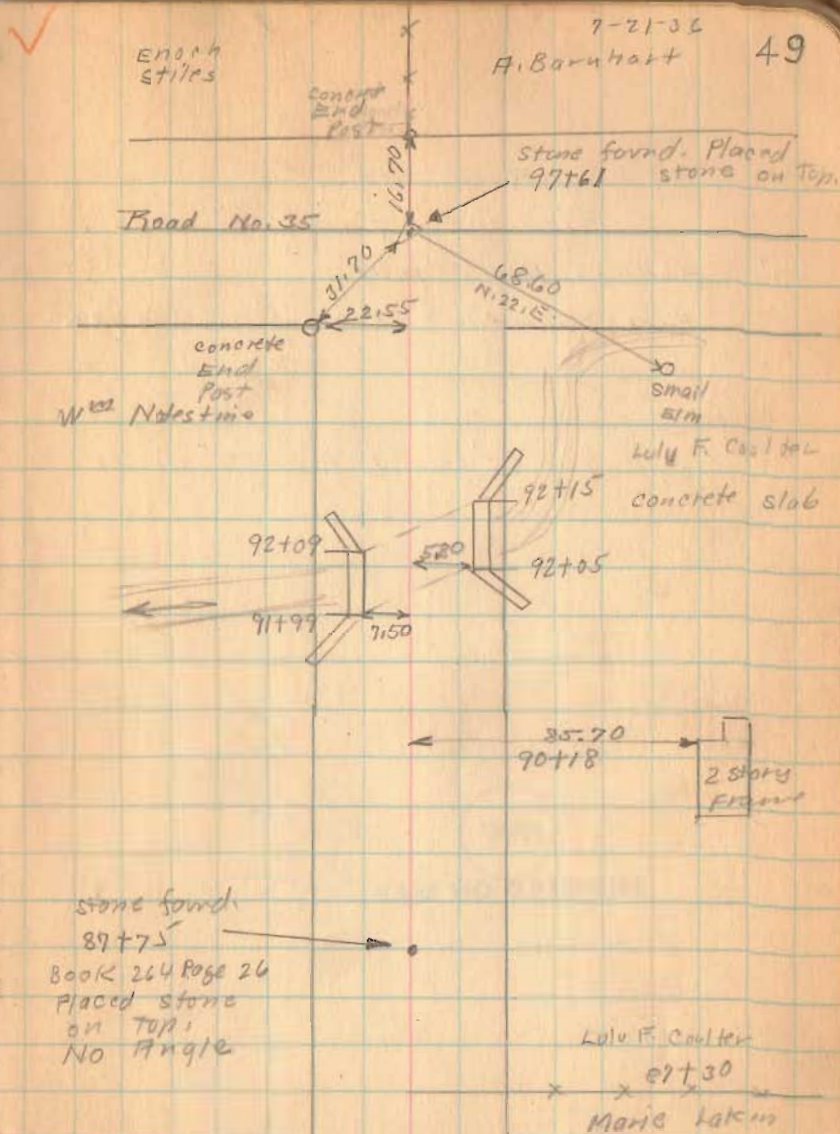 7-21-36
49
Enoch
Stiles
A. Barnhart
concrete
End
Post
19.20
stone found. Placed
97+61 stone on Top.
Road No. 35
31.70
68.60
N. 22. E.
22.55
concrete
End
Post
Small
Elm
Wm Notestine
Lulu F. Coulter
92+15
concrete slab
92+09
5.20
92+05
91+99
7.50
85.70
90+18
2 story
Frame
stone found.
87+75
Book 264 Page 26
Placed stone
on Top.
No Angle
Lulu F. Coulter
87+30
Marie Lakin